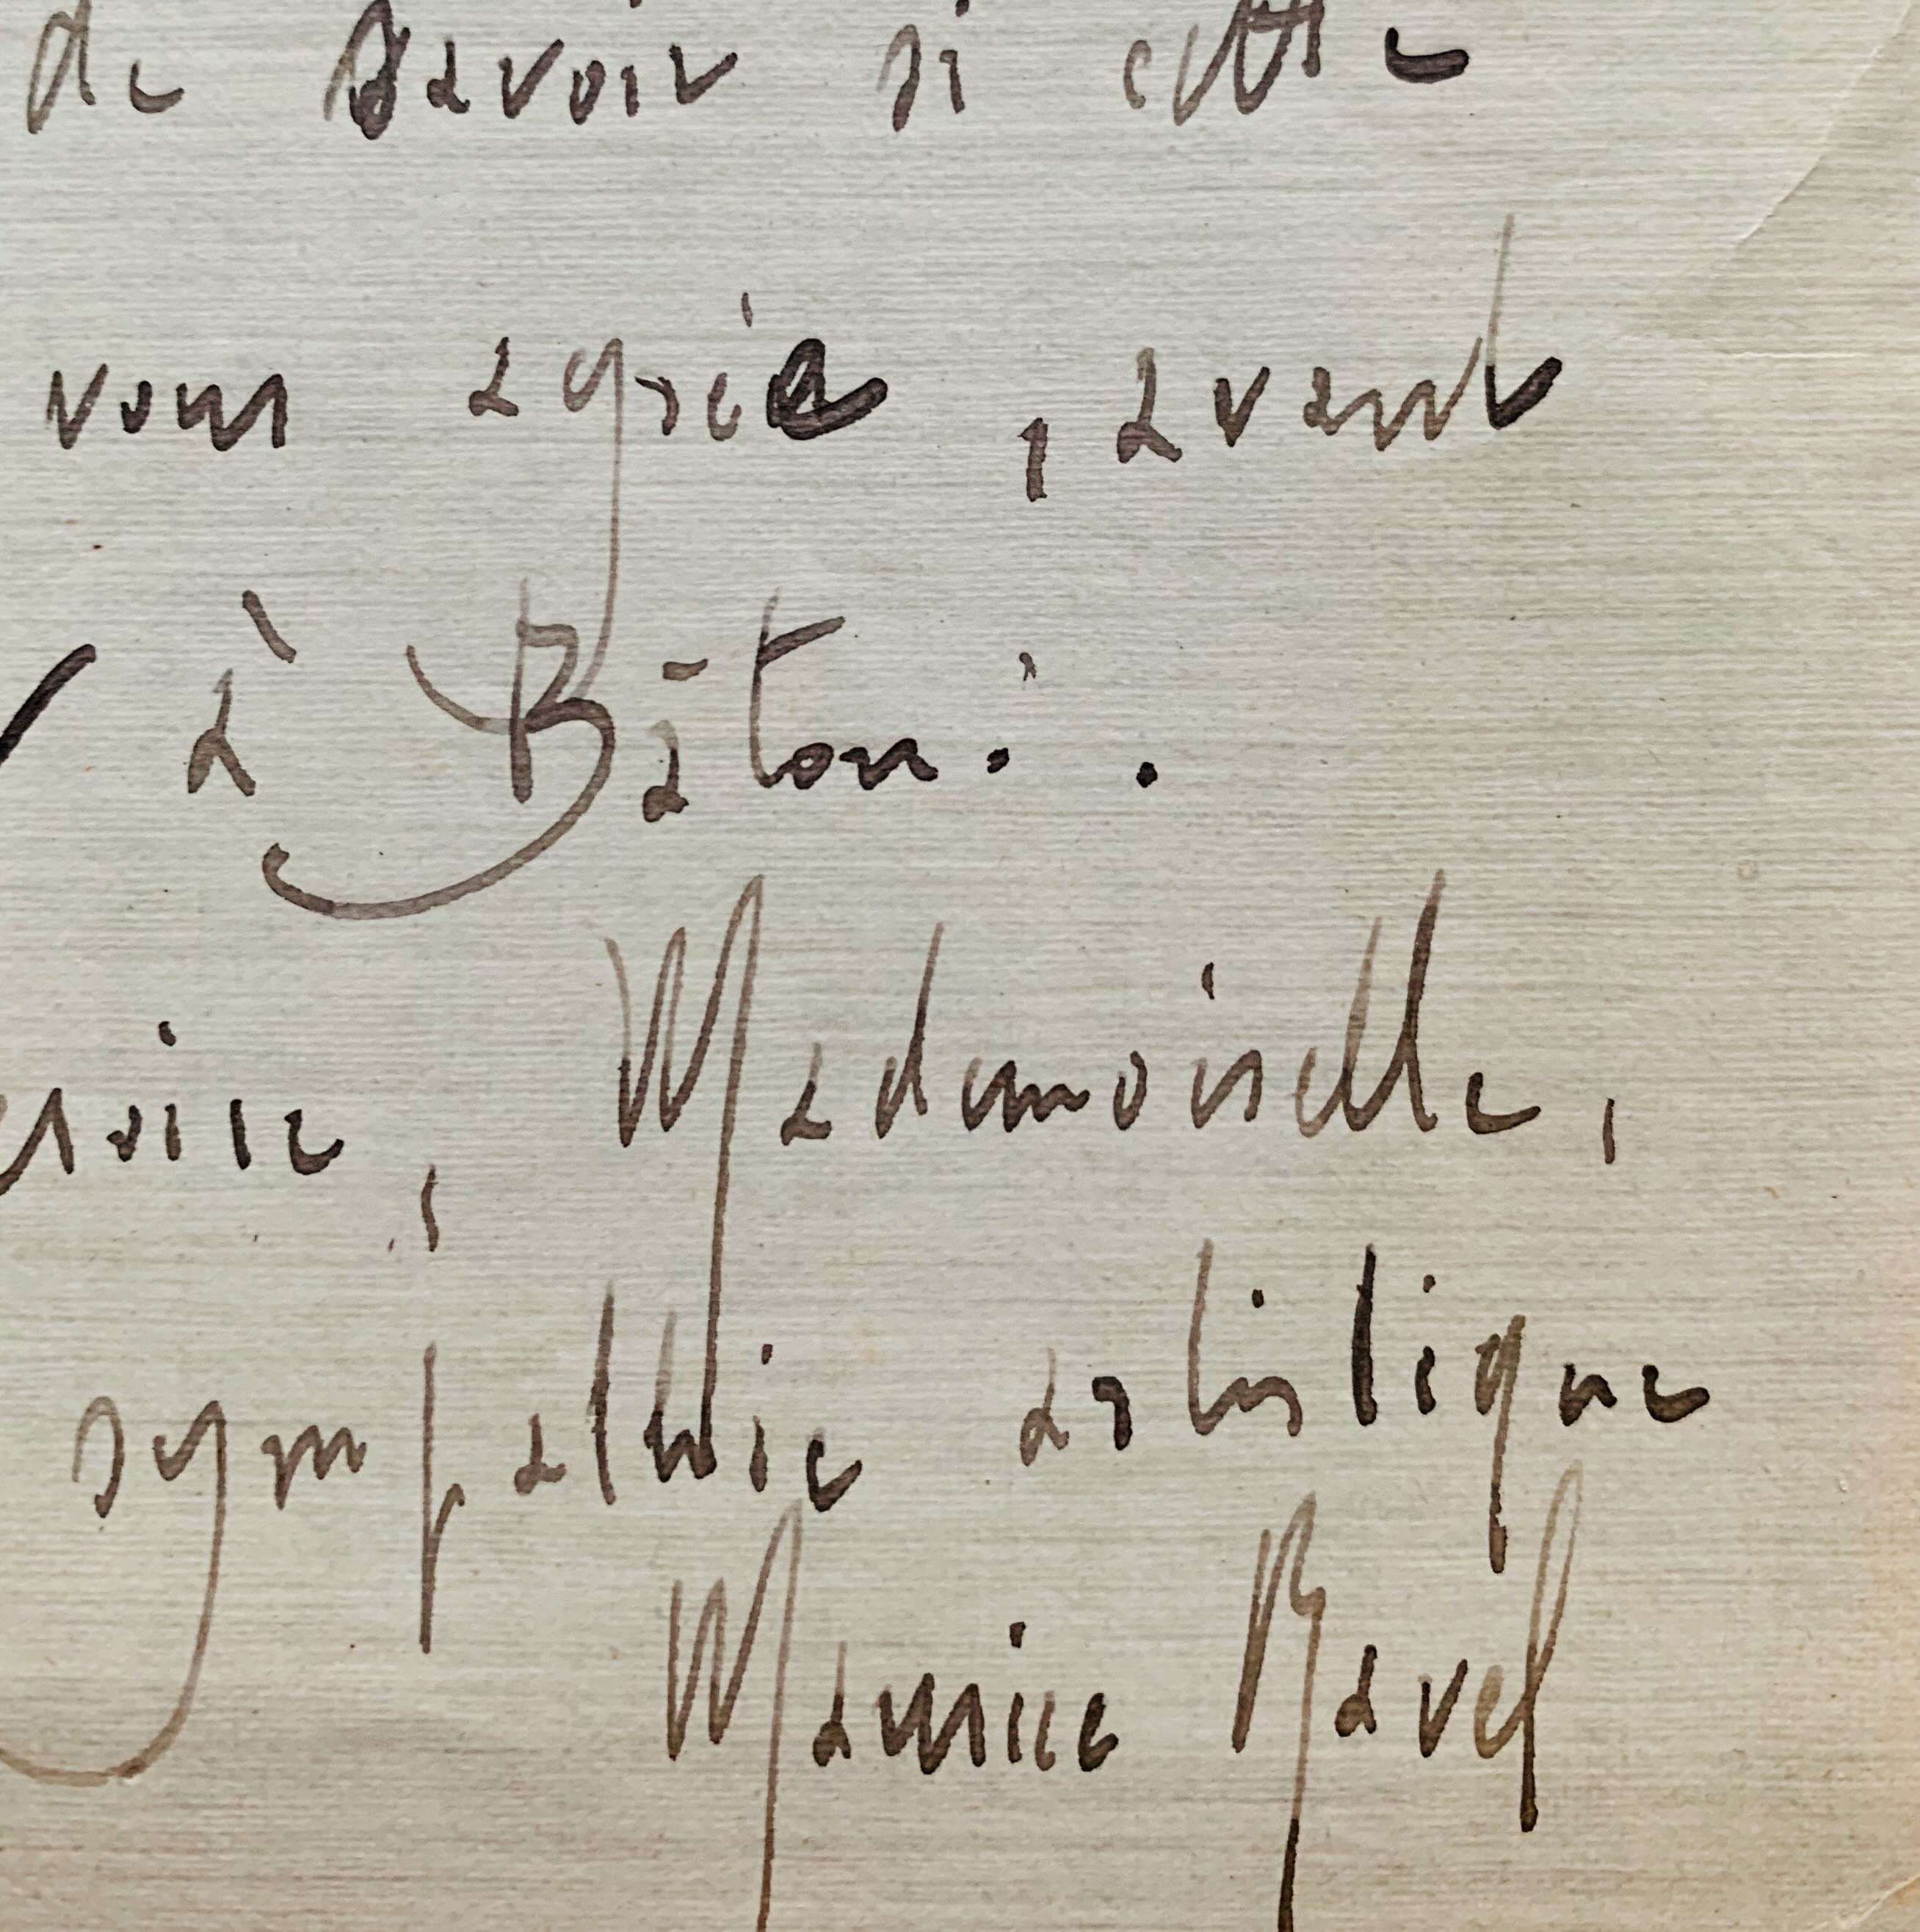 de savoir si cette
vous agrée, avant
à Bâton.
croire, Mademoiselle,
sympathie artistique
Maurice Ravel